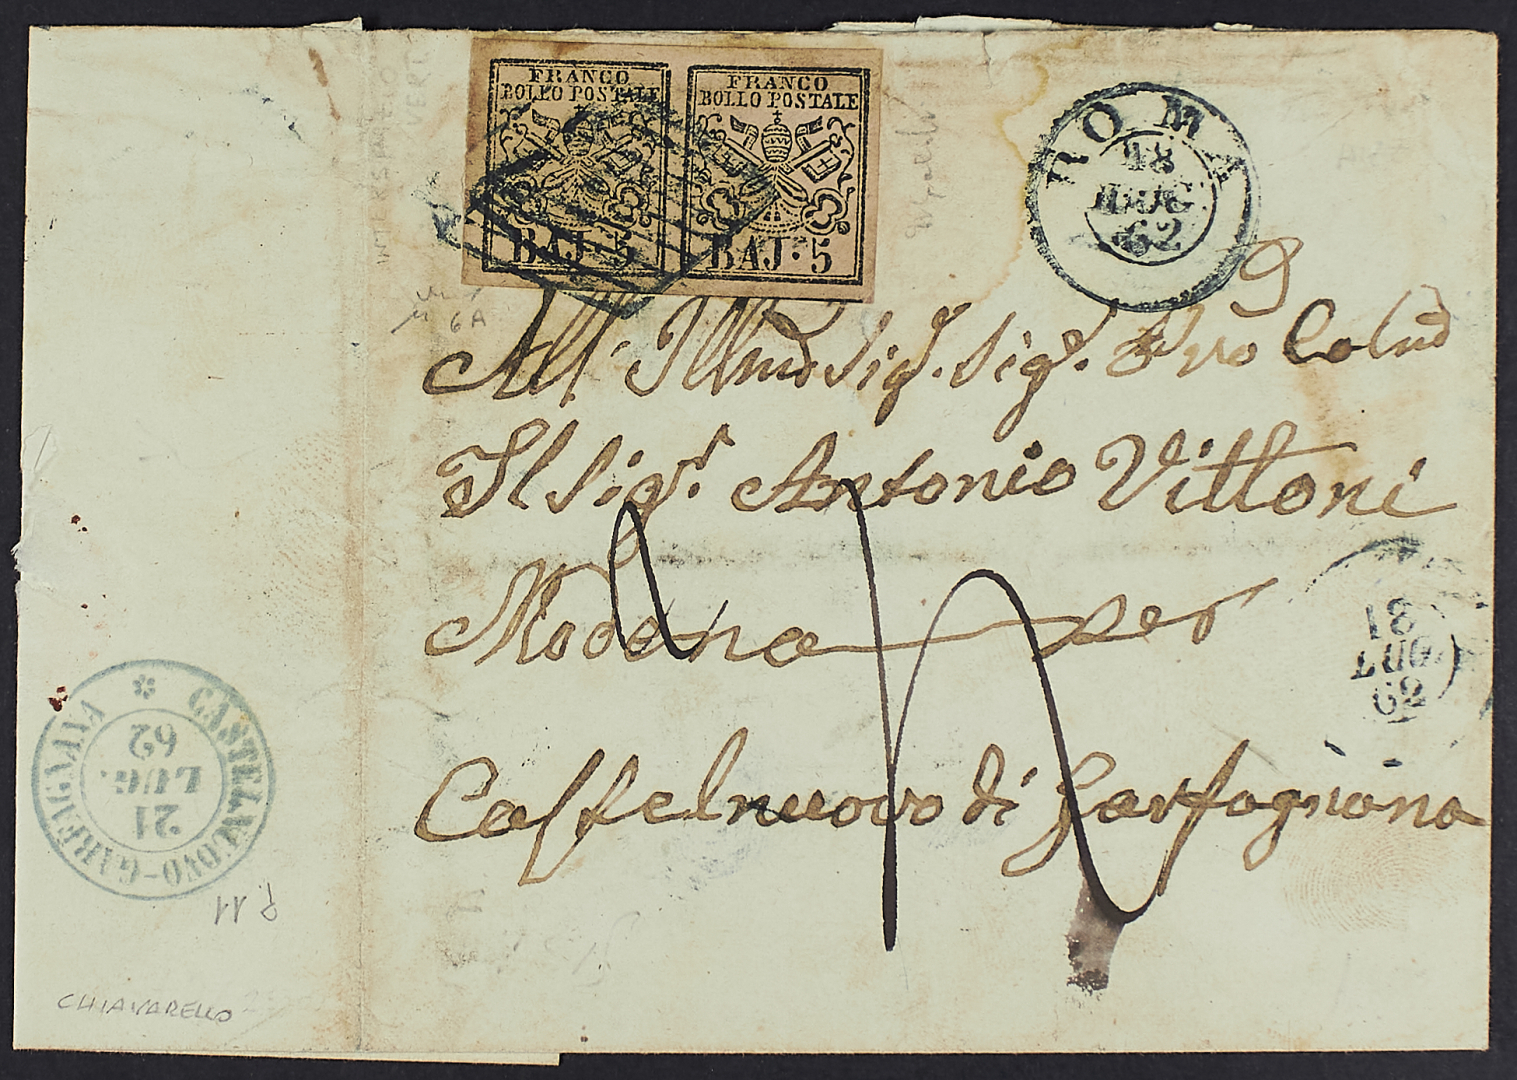 FRANCO
BOLLO POSTALE
BAJ. 5
FRANCO
BOLLO POSTALE
BAJ. 5
ROMA
18
LUG
62
6A
All' Illmo Sigr. Sigr.
Il Sigr. Antonio Vittoni
Modena per
Castelnuovo di Garfagnana
18
LUG
62
CASTELNUOVO-GARFAGNANA
21
LUG.
62
P. 11
CHIAVARELLO